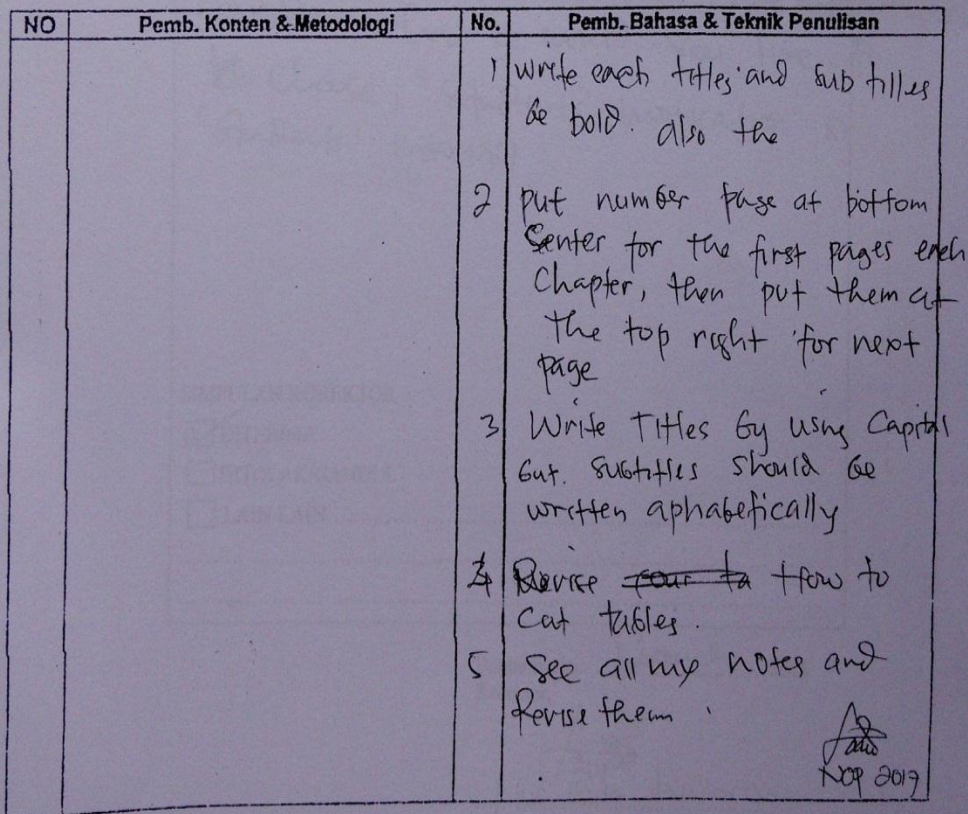 NO Pemb. Konten & Metodologi No. Pemb. Bahasa & Teknik Penulisan
1 write each titles and sub titles
be bold. also the
2 put number page at bottom
Senter for the first pages each
Chapter, then put them at
the top right for next
page
3 Write Titles by using Capital
but. subtitles should be
written aphabetically
4 Revise How to
Cat tables.
5 See all my notes and
Revise them.
2017